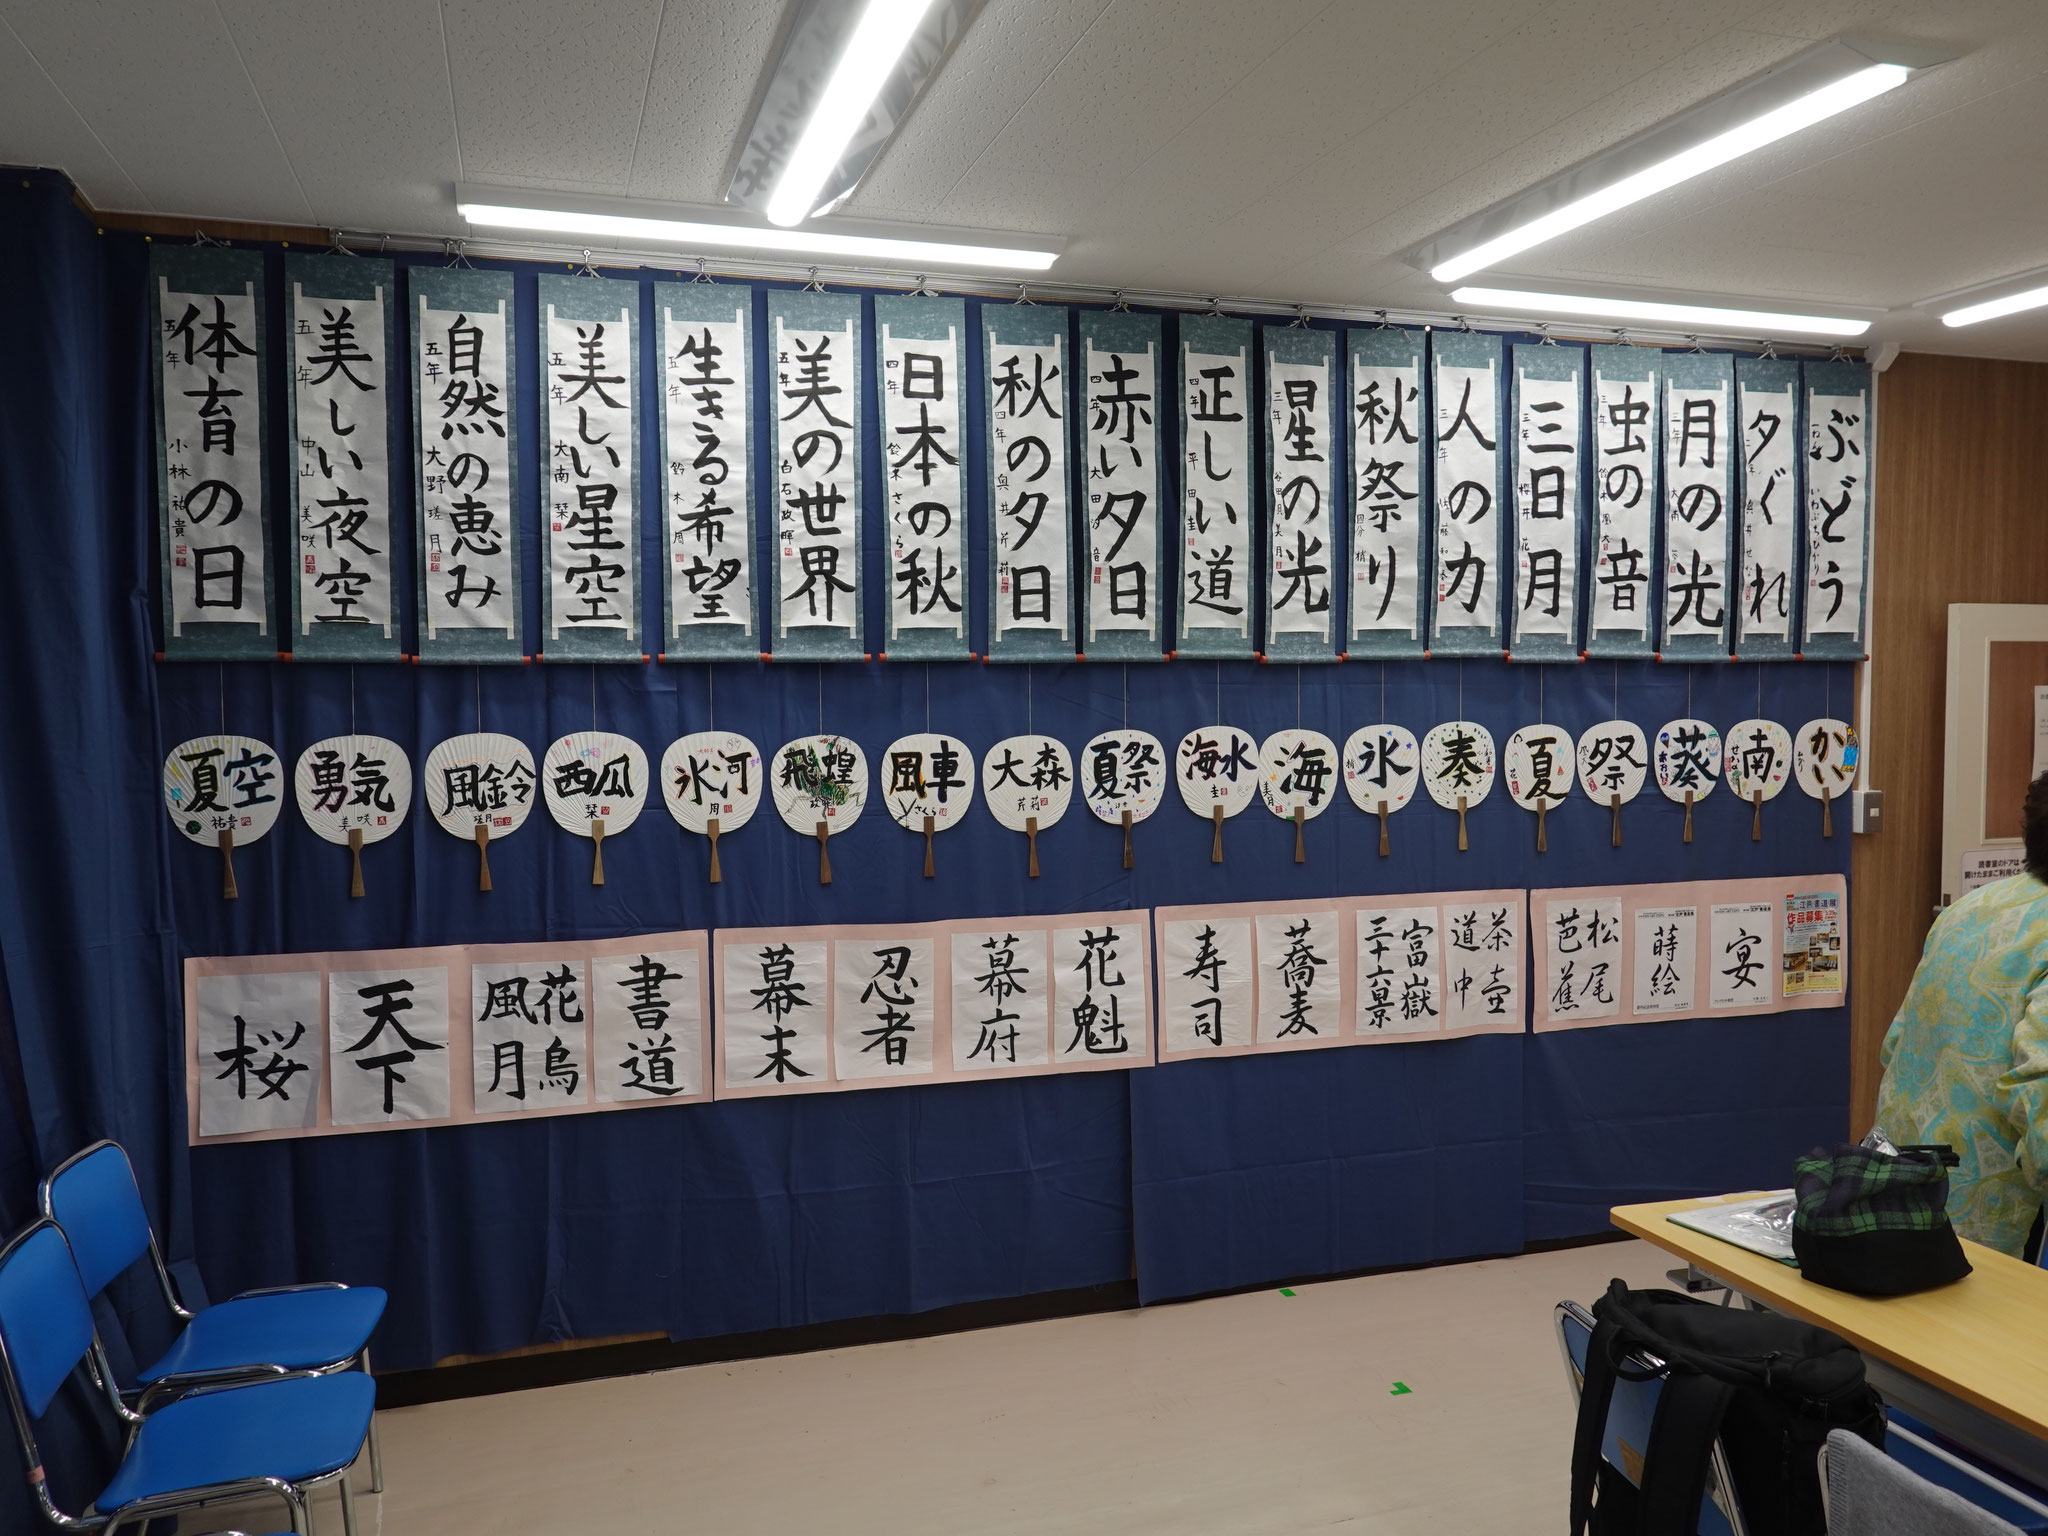 体育の日
五年 小林祐貴
美しい夜空
五年 中山美咲
自然の恵み
五年 大野瑳月
美しい星空
五年 大南栞
生きる希望
五年 鈴木周
美の世界
五年 白石政暉
日本の秋
四年 鈴木さくら
秋の夕日
四年 奥井芹莉
赤い夕日
四年 大田汐音
正しい道
四年 平田圭
星の光
三年
秋祭り
国分楢
人の力
三年 佐藤和奏
三日月
三年 櫻井花
虫の音
三年 鈴木凰大
月の光
三年 大南葵
夕ぐれ
ぶどう
いわぶちひかり
夏空
祐貴
勇気
美咲
風鈴
瑳月
西瓜
栞
氷河
周
飛蝗
風車
さくら
大森
芹莉
夏祭
海水
圭
海
美月
氷
楢
奏
夏
花
祭
葵
あおい
南
せな
かい
桜
天下
花鳥風月
書道
幕末
忍者
幕府
花魁
寿司
蕎麦
富嶽三十六景
茶壺道中
松尾芭蕉
蒔絵
宴
江戸書道展
作品募集
読書室のドアは